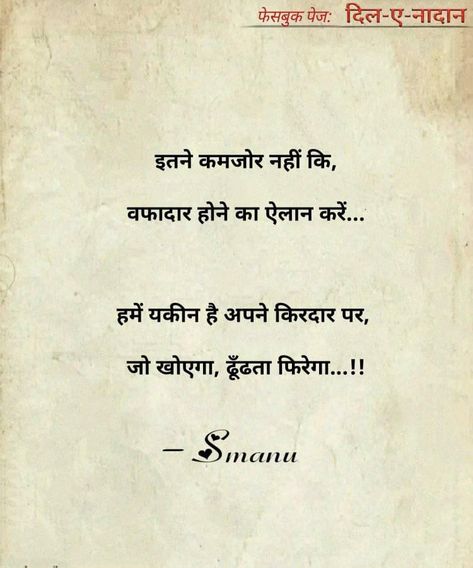 फेसबुक पेज: दिल-ए-नादान
इतने कमजोर नहीं कि,
वफादार होने का ऐलान करें...
हमें यकीन है अपने किरदार पर,
जो खोएगा, ढूँढता फिरेगा...!!
– Smanu